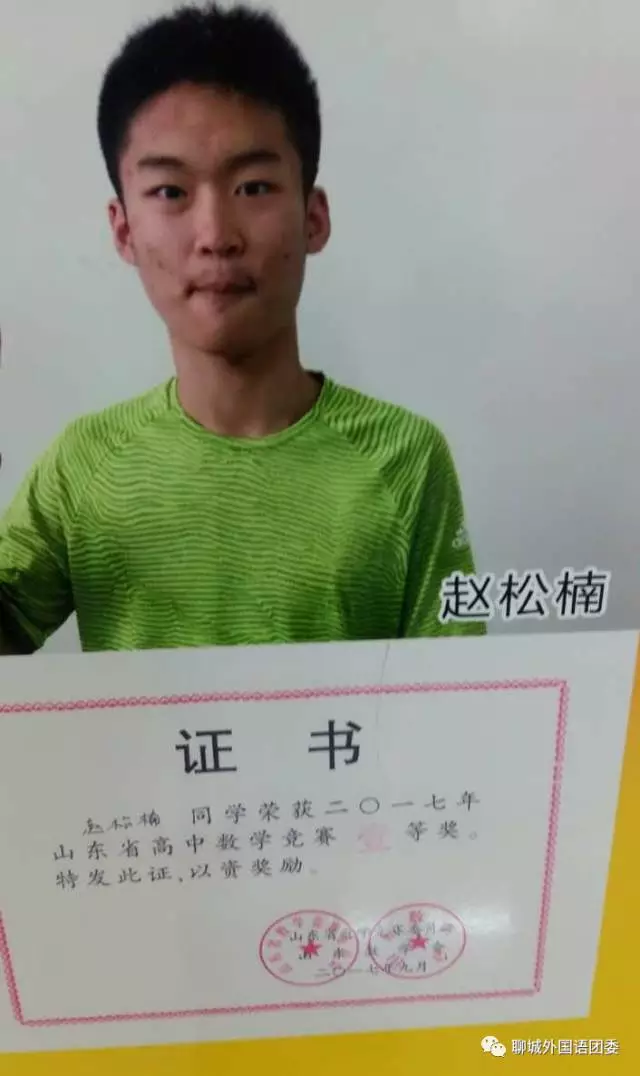 赵松楠
证 书
赵松楠 同学荣获二〇一七年
山东省高中数学竞赛 壹 等奖。
特发此证,以资奖励。
二〇一七年九月
聊城外国语团委